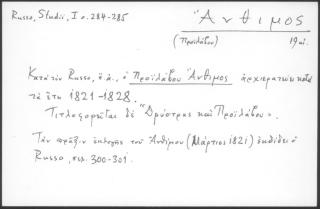 Russo, Studii, I σ. 284-285
Ἄνθιμος
(Προϊλάβου) 19 αἰ.
Κατὰ τὸν Russo, ὅ.ἀ., ὁ Προϊλάβου Ἄνθιμος ἀρχιερατεύει κατὰ
τὰ ἔτη 1821-1828.
Τιτλοφορεῖται δὲ "Δρύστρας καὶ Προϊλάβου".
Τὴν πρᾶξιν ἐκλογῆς τοῦ Ἀνθίμου (Μάρτιος 1821) ἐκδίδει ὁ
Russo, σελ. 300-301.